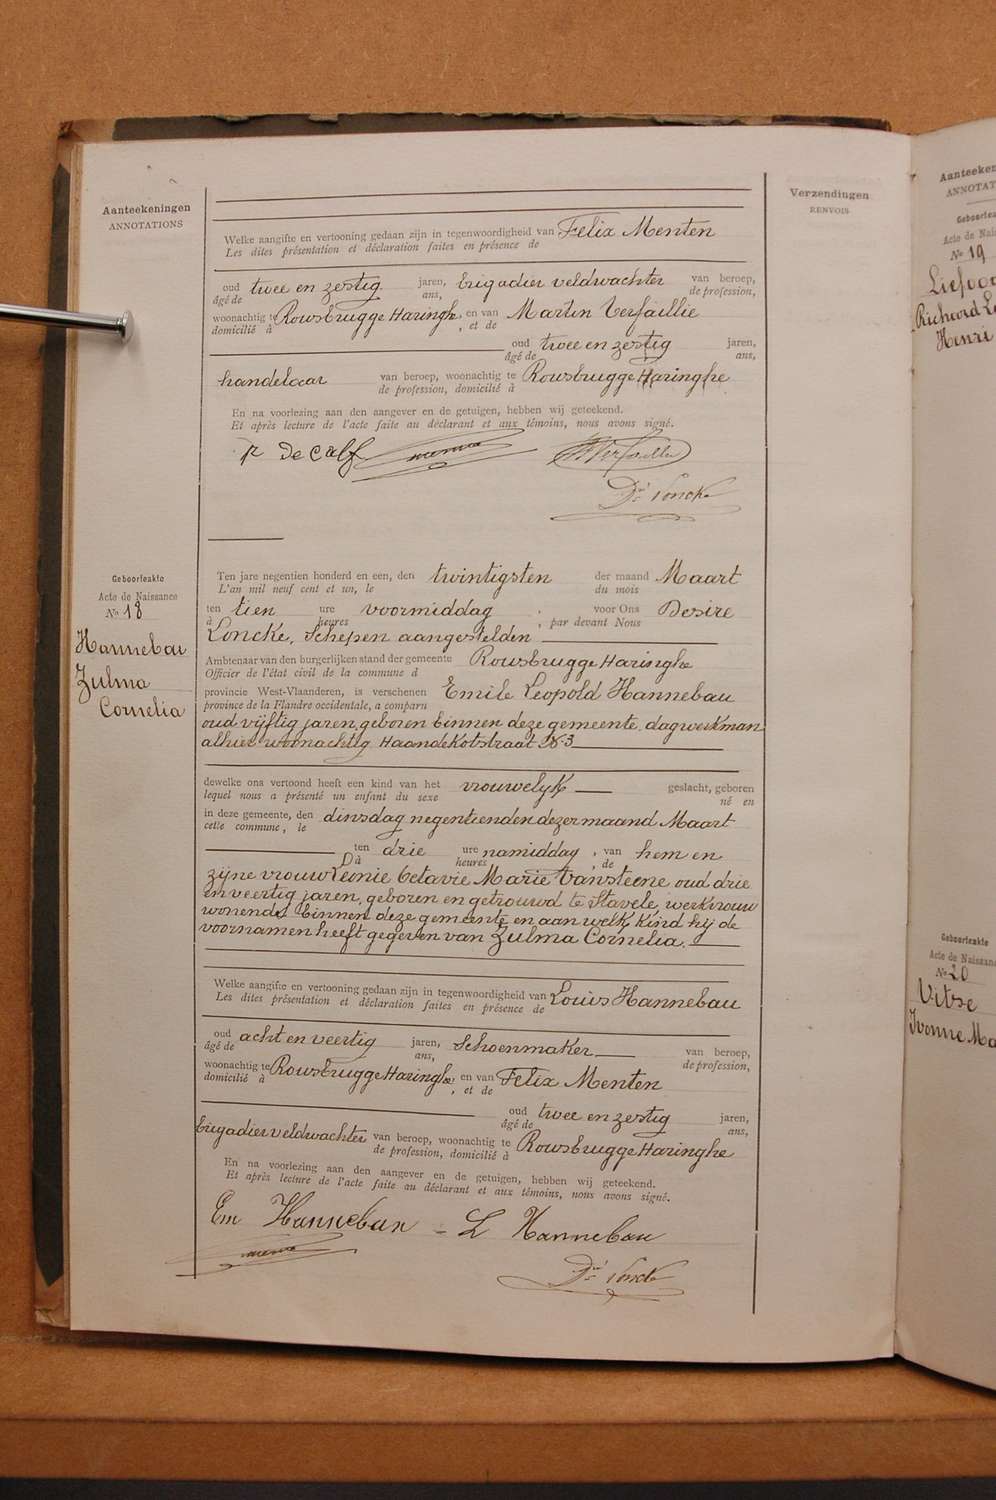 Aanteekeningen
ANNOTATIONS
Verzendingen
RENVOIS
Welke aangifte en vertooning gedaan zijn in tegenwoordigheid van Felix Menten
Les dites présentation et déclaration faites en présence de
oud twee en zestig jaren, brigadier veldwachter van beroep,
âgé de ans, de profession,
woonachtig te Rousbrugge Haringhe, en van Martin Verfaillie
domicilié à , et de
oud twee en zestig jaren,
âgé de ans,
handelaar van beroep, woonachtig te Rousbrugge Haringhe
de profession, domicilié à
En na voorlezing aan den aangever en de getuigen, hebben wij geteekend.
Et après lecture de l'acte faite au déclarant et aux témoins, nous avons signé.
De Calf
Dré Loncke
Geboorteakte
Acte de Naissance
No 18
Hannebau
Zulma
Cornelia
Ten jare negentien honderd en een, den twintigsten der maand Maart
L'an mil neuf cent et un, le du mois
ten tien ure voormiddag , voor Ons Desire
à heures , par devant Nous
Loncke, Schepen aangestelden
Ambtenaar van den burgerlijken stand der gemeente Rousbrugge Haringhe
Officier de l'état civil de la commune d
provincie West-Vlaanderen, is verschenen Emile Leopold Hannebau
province de la Flandre occidentale, a comparu
oud vijftig jaren, geboren binnen deze gemeente, dagwerkman
alhier woonachtig Haandekotstraat No 3
dewelke ons vertoond heeft een kind van het vrouwelyk geslacht, geboren
lequel nous a présenté un enfant du sexe né en
in deze gemeente, den dinsdag negentienden dezer maand Maart
cette commune, le
ten drie ure namiddag , van hem en
à heures , de
zijne vrouw Leonie Octavie Marie Vansteene, oud drie
en veertig jaren, geboren en getrouwd te Stavele, werkvrouw
wonende binnen deze gemeente en aan welk kind hij de
voornamen heeft gegeven van Zulma Cornelia.
Welke aangifte en vertooning gedaan zijn in tegenwoordigheid van Louis Hannebau
Les dites présentation et déclaration faites en présence de
oud acht en veertig jaren, Schoenmaker van beroep,
âgé de ans, de profession,
woonachtig te Rousbrugge Haringhe, en van Felix Menten
domicilié à , et de
oud twee en zestig jaren,
âgé de ans,
brigadier veldwachter van beroep, woonachtig te Rousbrugge Haringhe
de profession, domicilié à
En na voorlezing aan den aangever en de getuigen, hebben wij geteekend.
Et après lecture de l'acte faite au déclarant et aux témoins, nous avons signé.
Em Hannebau - L Hannebau
Dré Loncke
No 19
Richard
Henri
Geboorteakte
Acte de Naissance
No 20
Vitse
Ivonne